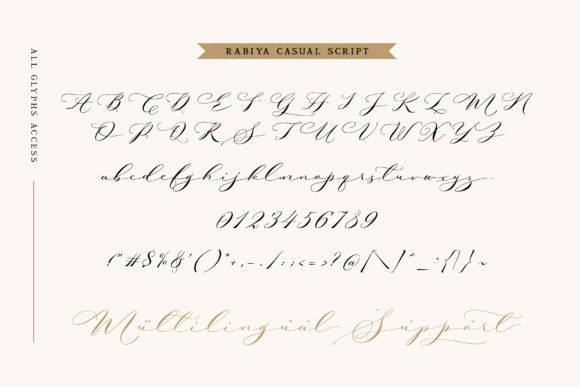 RABIYA CASUAL SCRIPT
ALL GLYPHS ACCESS
A B C D E F G H I J K L M N
O P Q R S T U V W X Y Z
abcdefghijklmnopqrstuvwxyz
0123456789
!"#$%&'()*+,-./:;<=>?@[\]^_`{|}~
Múltílíngüál Süppórt